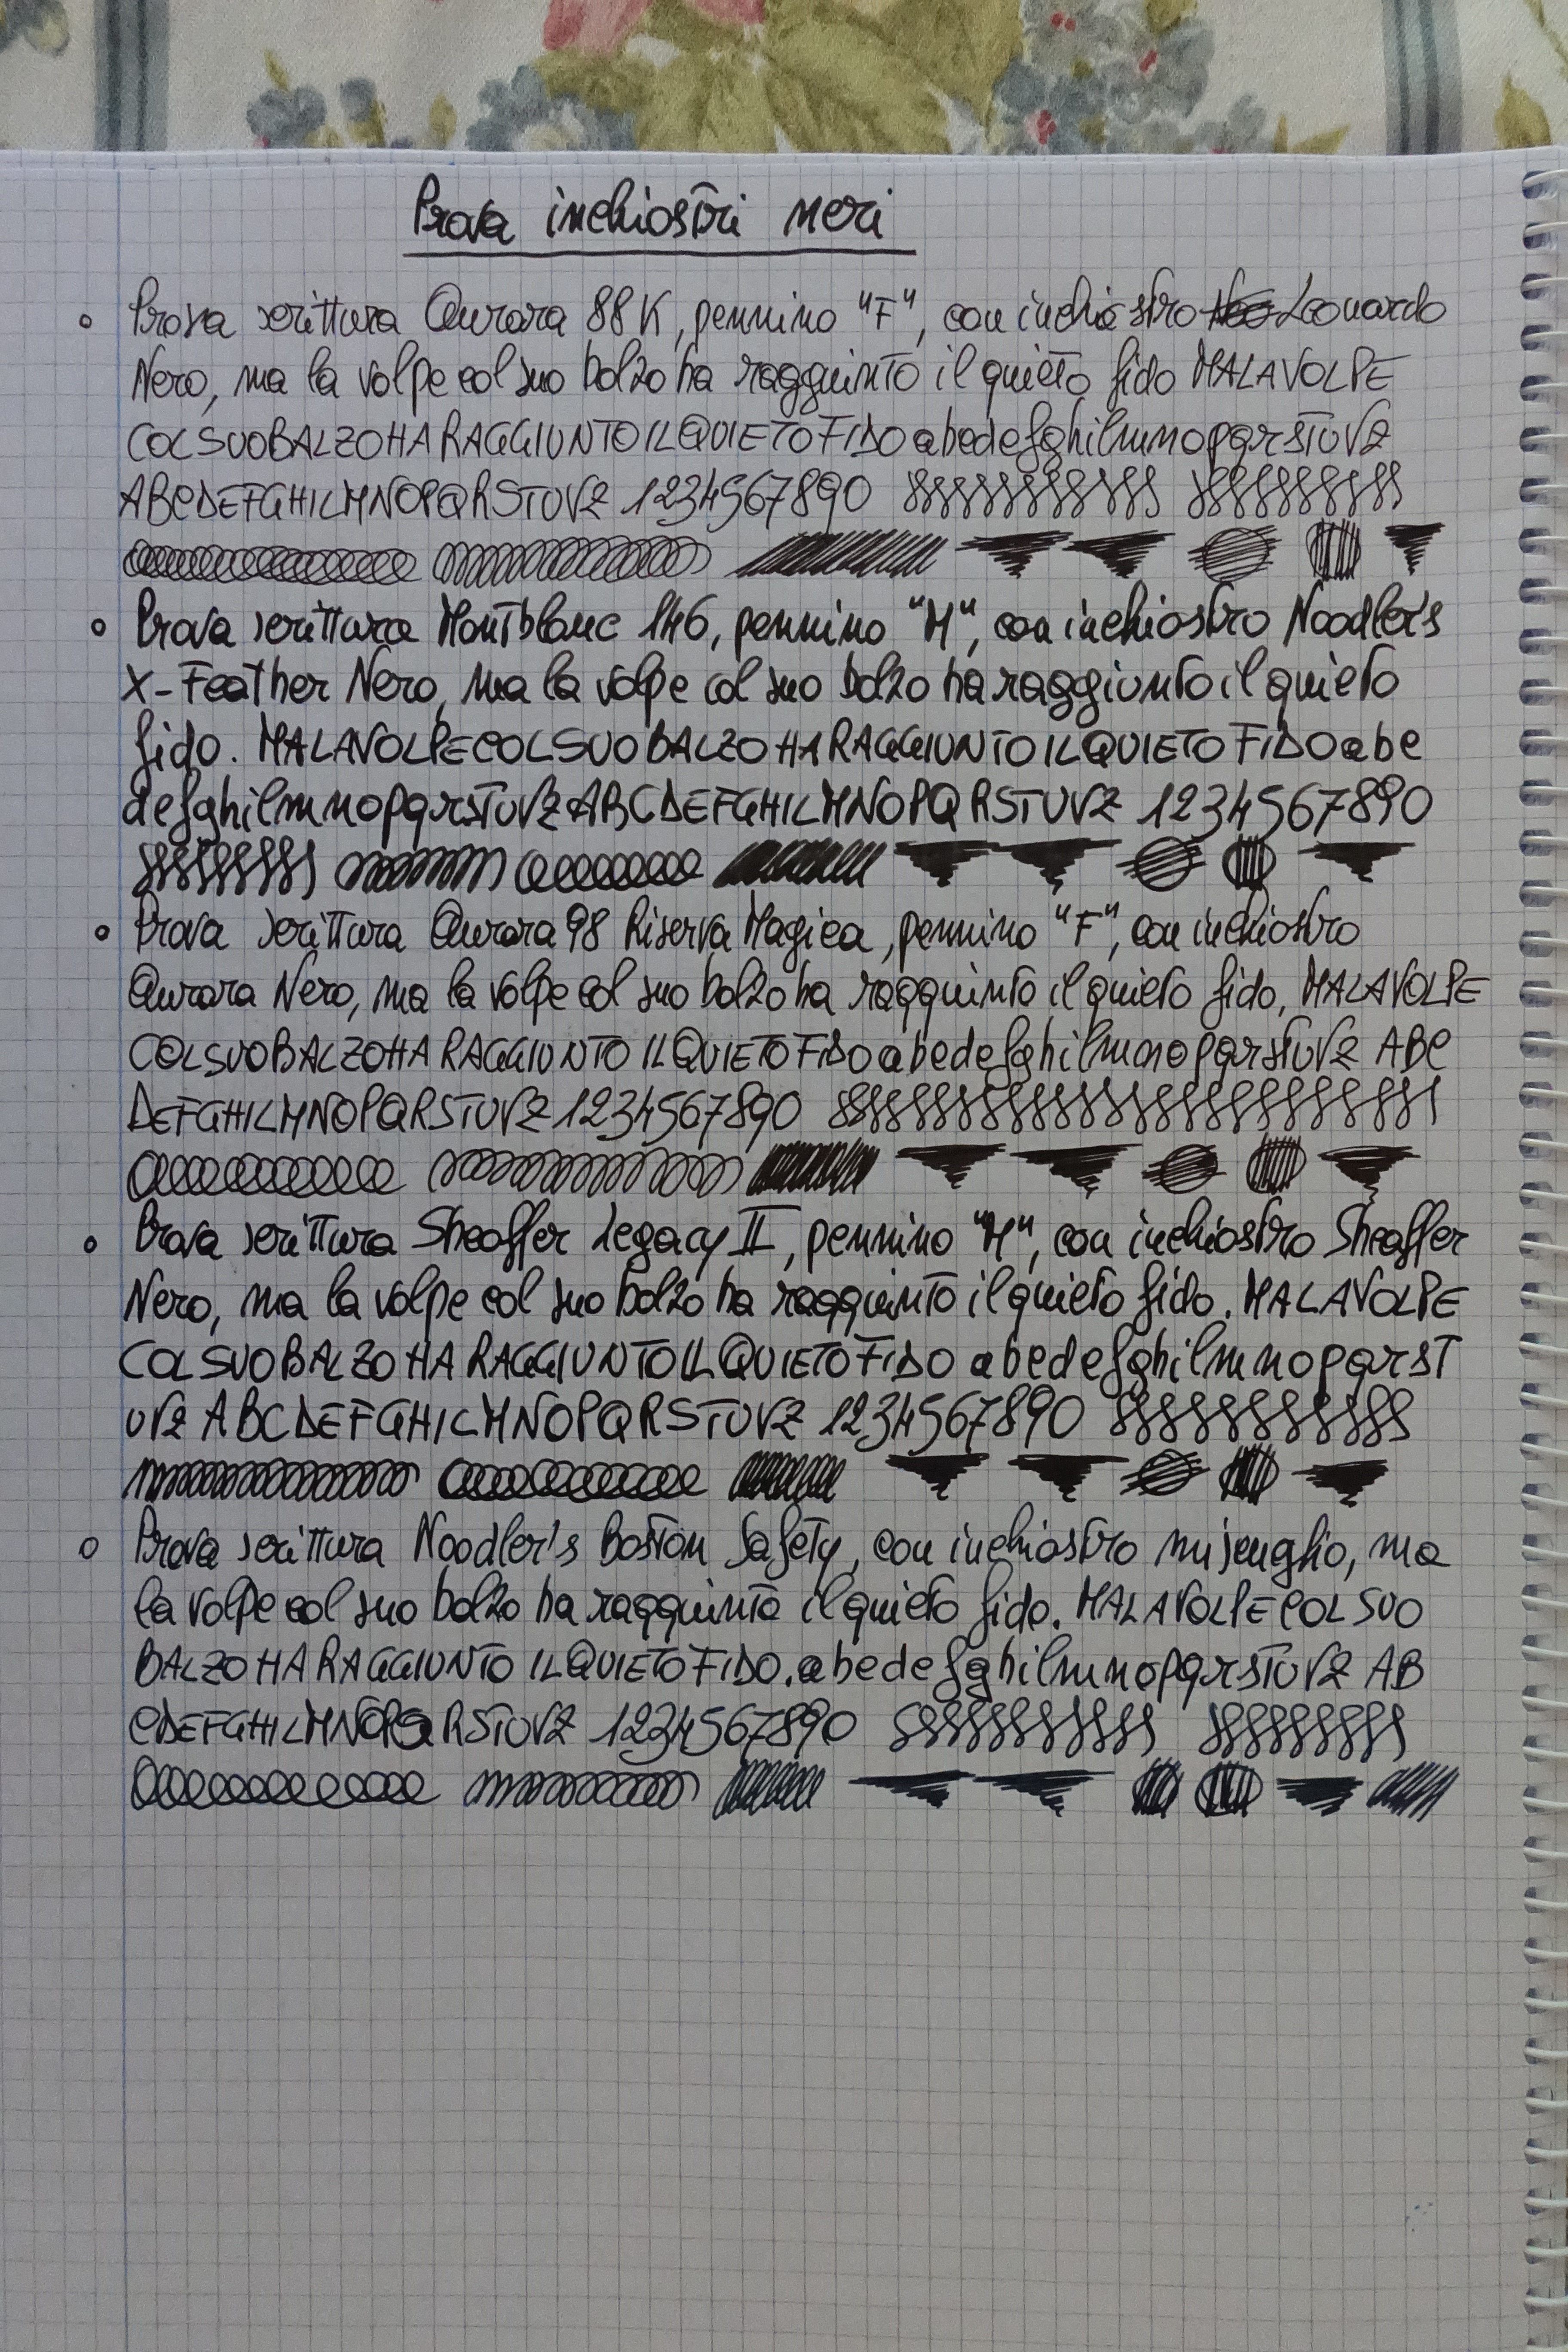 Prova inchiostri neri
Prova scrittura Aurora 88K, pennino "F", con inchiostro Leonardo
Nero, ma la volpe col suo balzo ha raggiunto il quieto fido MALAVOLPE
COLSUOBALZOHARAGGIUNTOILQUIETOFIDO abcdefghilmnopqrstuvz
ABCDEFGHILMNOPQRSTUVZ 1234567890
Prova scrittura Montblanc 146, pennino "M", con inchiostro Noodler's
X-Feather Nero, ma la volpe col suo balzo ha raggiunto il quieto
fido. MALAVOLPECOLSUOBALZOHARAGGIUNTOILQUIETOFIDO abc
defghilmnopqrstuvz ABCDEFGHILMNOPQRSTUVZ 1234567890
Prova scrittura Aurora 98 Riserva Magica, pennino "F", con inchiostro
Aurora Nero, ma la volpe col suo balzo ha raggiunto il quieto fido, MALAVOLPE
COLSUOBALZOHARAGGIUNTOILQUIETOFIDO abcdefghilmnopqrstuvz ABC
DEFGHILMNOPQRSTUVZ 1234567890
Prova scrittura Sheaffer Legacy II, pennino "M", con inchiostro Sheaffer
Nero, ma la volpe col suo balzo ha raggiunto il quieto fido. MALAVOLPE
COLSUOBALZOHARAGGIUNTOILQUIETOFIDO abcdefghilmnopqrst
uvz ABCDEFGHILMNOPQRSTUVZ 1234567890
Prova scrittura Noodler's Boston Safety, con inchiostro miscuglio, ma
la volpe col suo balzo ha raggiunto il quieto fido. MALAVOLPECOLSUO
BALZOHARAGGIUNTOILQUIETOFIDO. abcdefghilmnopqrstuvz AB
CDEFGHILMNOPQRSTUVZ 1234567890